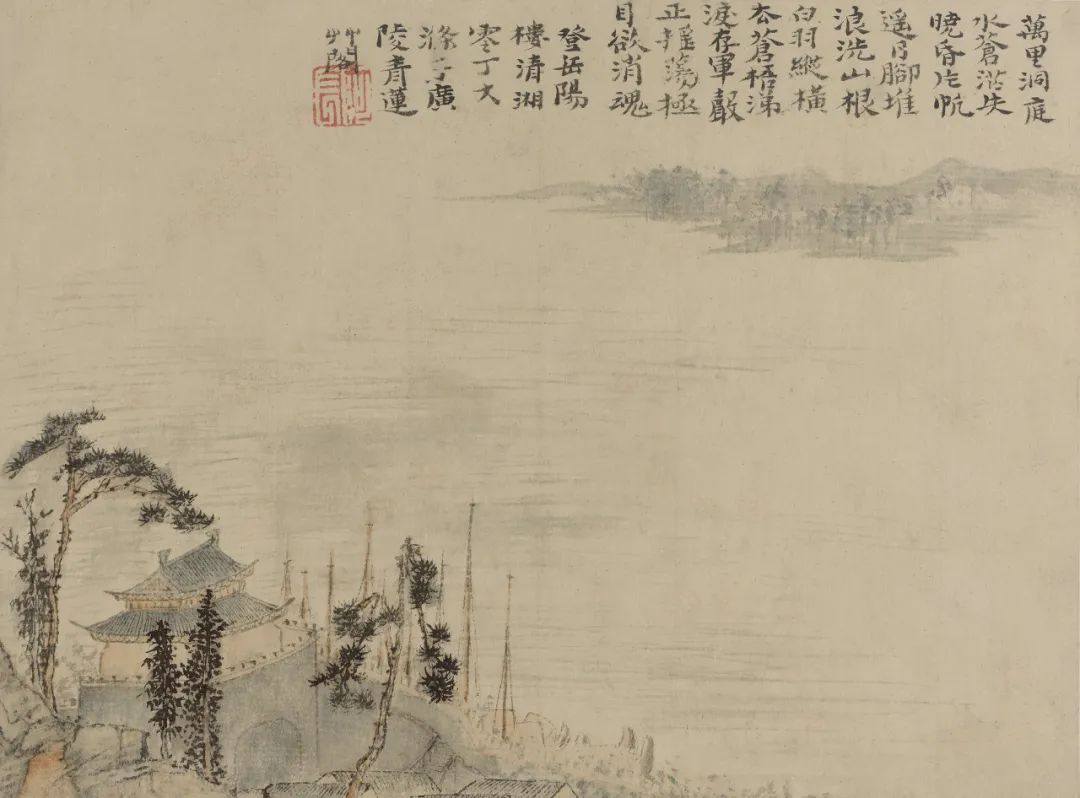 萬里洞庭
水蒼茫失
曉昏片帆
遥日腳堆
浪洗山根
白羽縱橫
去蒼梧涕
淚存軍聲
正摇蕩極
目欲消魂
登岳陽
樓清湘
零丁大
滌子廣
陵青蓮
艸閣